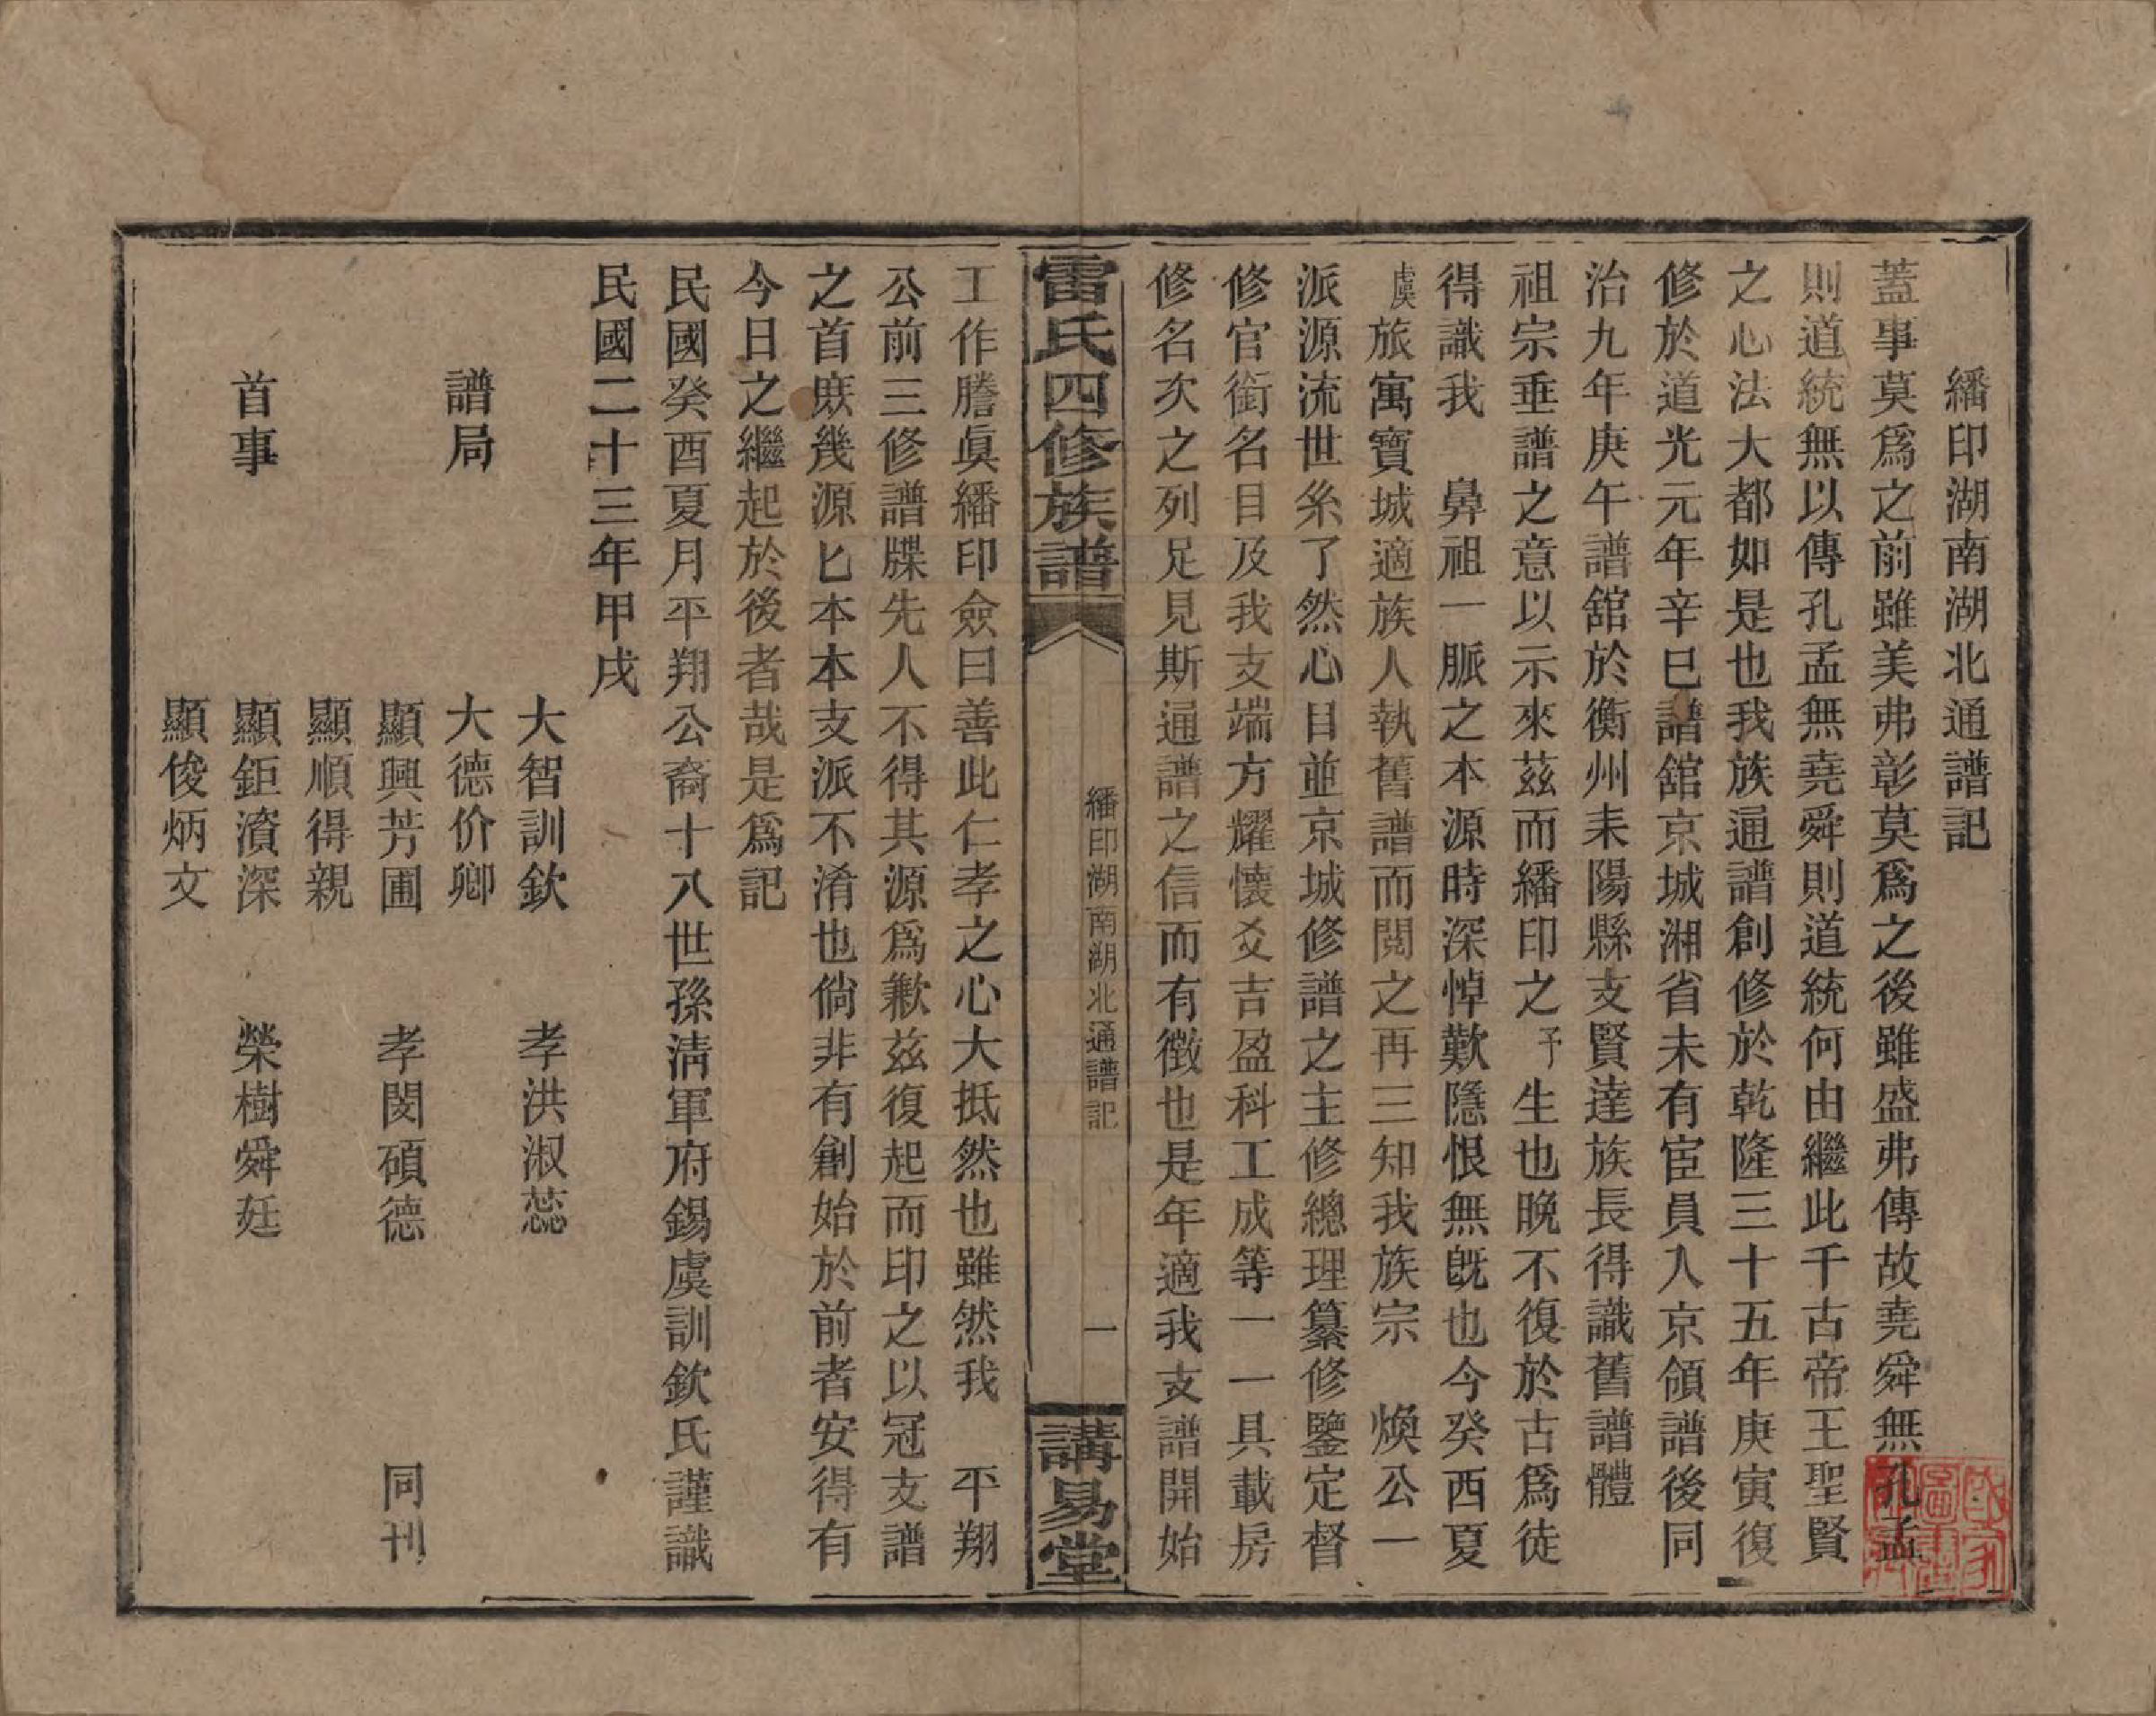 繙印湖南湖北通譜記
蓋事莫爲之前雖美弗彰莫爲之後雖盛弗傳故堯舜無孔孟
則道統無以傳孔孟無堯舜則道統何由繼此千古帝王聖賢
之心法大都如是也我族通譜創修於乾隆三十五年庚寅復
修於道光元年辛巳譜舘京城湘省未有宦員入京領譜後同
治九年庚午譜舘於衡州耒陽縣支賢達族長得識舊譜體
祖宗垂譜之意以示來茲而繙印之予生也晚不復於古爲徒
得識我　鼻祖一脈之本源時深悼歎隱恨無旣也今癸酉夏
虞旅寓寶城適族人執舊譜而閱之再三知我族宗　煥公一
派源流世系了然心目並京城修譜之主修總理纂修鑒定督
修官銜名目及我支端方耀懷爻吉盈科工成等一一具載房
修名次之列足見斯通譜之信而有徵也是年適我支譜開始
雷氏四修族譜
繙印湖南湖北通譜記
一
講易堂
工作謄眞繙印僉曰善此仁孝之心大抵然也雖然我　平翔
公前三修譜牒先人不得其源爲歉茲復起而印之以冠支譜
之首庶幾源匕本本支派不淆也倘非有創始於前者安得有
今日之繼起於後者哉是爲記
民國癸酉夏月平翔公裔十八世孫淸軍府錫虞訓欽氏謹識
民國二十三年甲戌
大智訓欽　孝洪淑蕊
譜局　大德价卿
顯興芳圃　孝閔碩德　同刊
顯順得親
首事　顯鉅濱深　榮樹舜廷
顯俊炳文